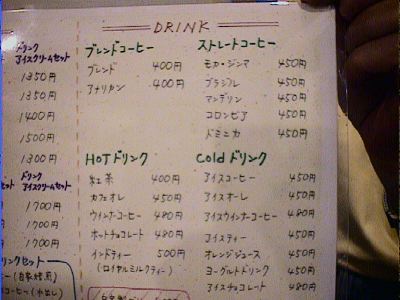 DRINK
ドリンク
アイスクリームセット
1350円
1350円
1400円
1500円
1300円
ドリンク
セット アイスクリームセット
1700円
1700円
1700円
ブレンドコーヒー
ブレンド 400円
アメリカン 400円
ストレートコーヒー
モカ・シジマ 450円
ブラジル 450円
マンデリン 450円
コロンビア 450円
ドミニカ 450円
HOTドリンク
紅茶 400円
カフェオレ 450円
ウインナーコーヒー 480円
ホットチョコレート 480円
インドティー 500円
(ロイヤルミルクティー)
Coldドリンク
アイスコーヒー 450円
アイスオーレ 450円
アイスウインナーコーヒー 480円
アイスティー 450円
オレンジジュース 450円
ヨーグルトドリンク 450円
アイスチョコレート 480円
リンクセット
ー(自家焙煎)
コーヒー(水出し)